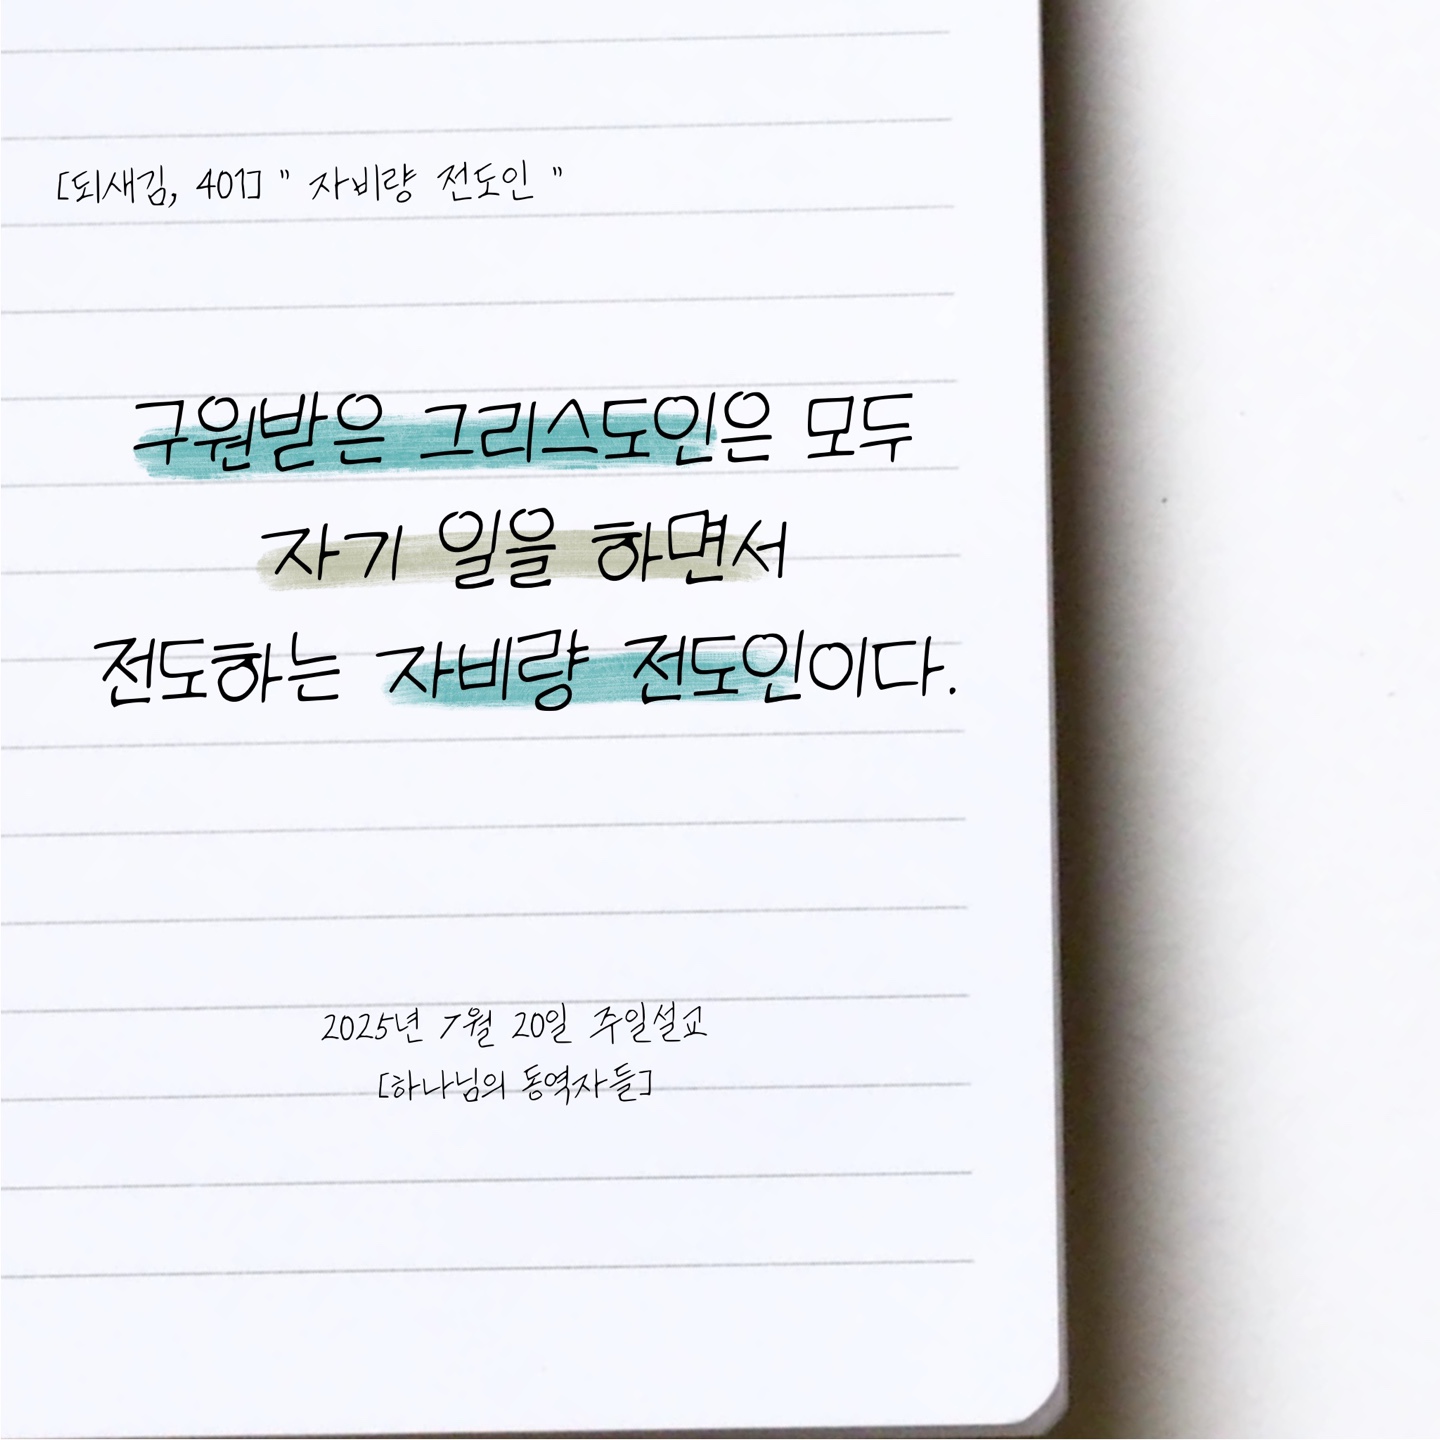 [되새김, 401] " 자비량 전도인 "
구원받은 그리스도인은 모두
자기 일을 하면서
전도하는 자비량 전도인이다.
2025년 7월 20일 주일설교
[하나님의 동역자들]